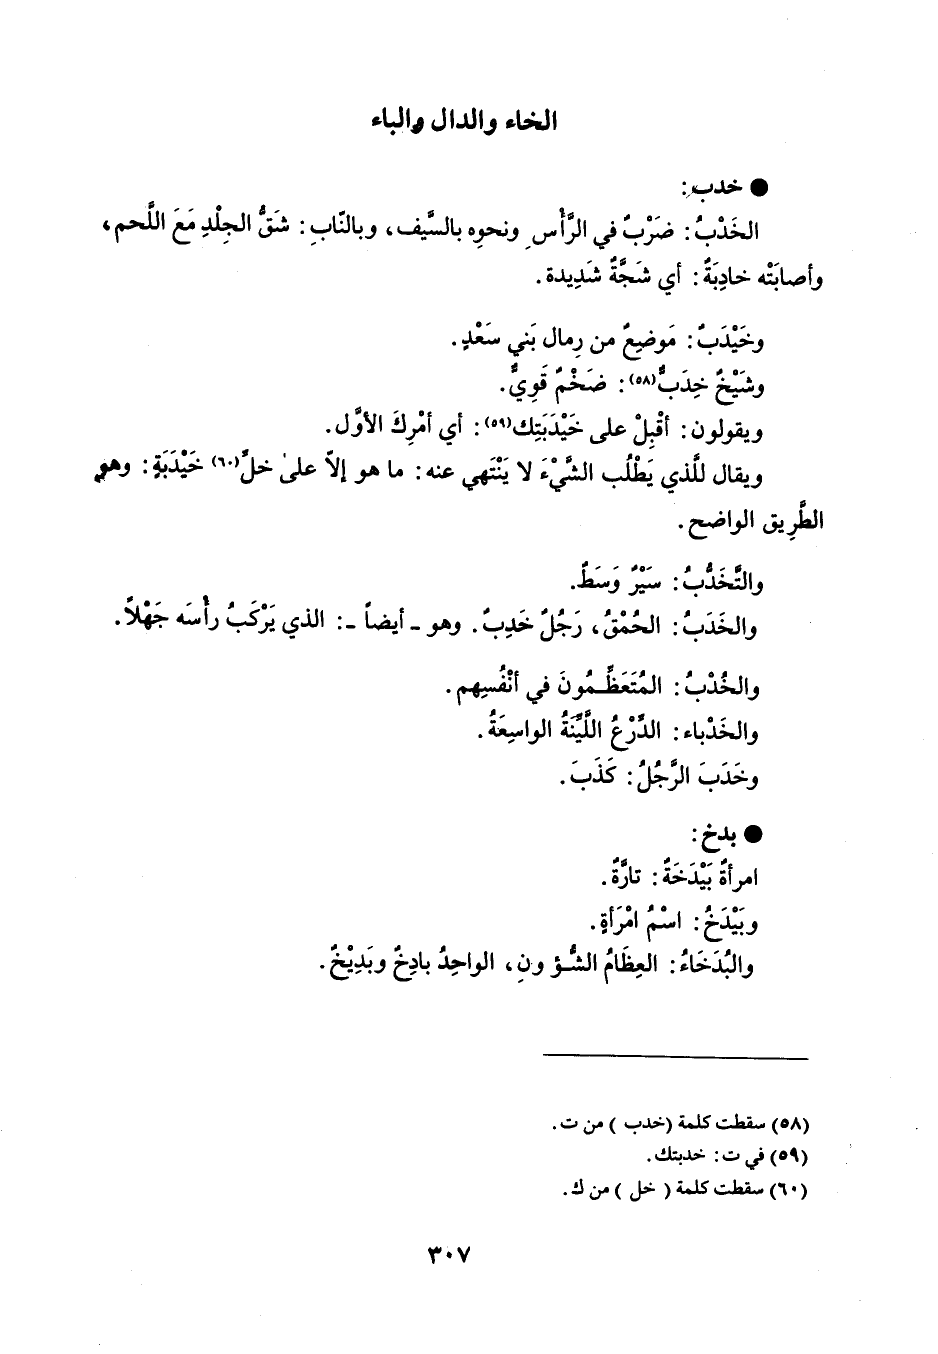 الخاء والدال والباء
● خدب:
الخَدْبُ: ضَرْبٌ في الرَّأْسِ ونحوِه بالسَّيف، وبالنّابِ: شَقُّ الجِلْدِ مَعَ اللَّحم،
وأصابَتْه خادِبَةٌ: أي شَجَّةٌ شَدِيدة.
وخَيْدَبٌ: مَوضِعٌ من رِمال بَني سَعْدٍ.
وشَيْخٌ خِدَبٌّ(٥٨): ضَخْمٌ قَوِيٌّ.
ويقولون: أقْبِلْ على خَيْدَبَتِك(٥٩): أي أمْرِكَ الأوَّل.
ويقال للَّذي يَطْلُب الشَّيْءَ لا يَنْتَهي عنه: ما هو إلاّ على خلِّ(٦٠) خَيْدَبَةٍ: وهو
الطَّرِيق الواضح.
والتَّخَدُّبُ: سَيْرٌ وَسَطٌ.
والخَدَبُ: الحُمْقُ، رَجُلٌ خَدِبٌ. وهو ـ أيضاً ـ: الذي يَرْكَبُ رأْسَه جَهْلاً.
والخُدْبُ: المُتَعَظِّمُونَ في أنْفُسِهم.
والخَدْباء: الدِّرْعُ اللَّيِّنَةُ الواسِعَةُ.
وخَدَبَ الرَّجُلُ: كَذَبَ.
● بدخ:
امرأةٌ بَيْدَخَةٌ: تارَّةٌ.
وبَيْدَخُ: اسْمُ امْرَأةٍ.
والبُدَخَاءُ: العِظَامُ الشُّؤونِ، الواحِدُ بادِخٌ وبَدِيْخٌ.
(٥٨) سقطت كلمة (خدب) من ت.
(٥٩) في ت: خدبتك.
(٦٠) سقطت كلمة (خل) من ك.
٣٠٧